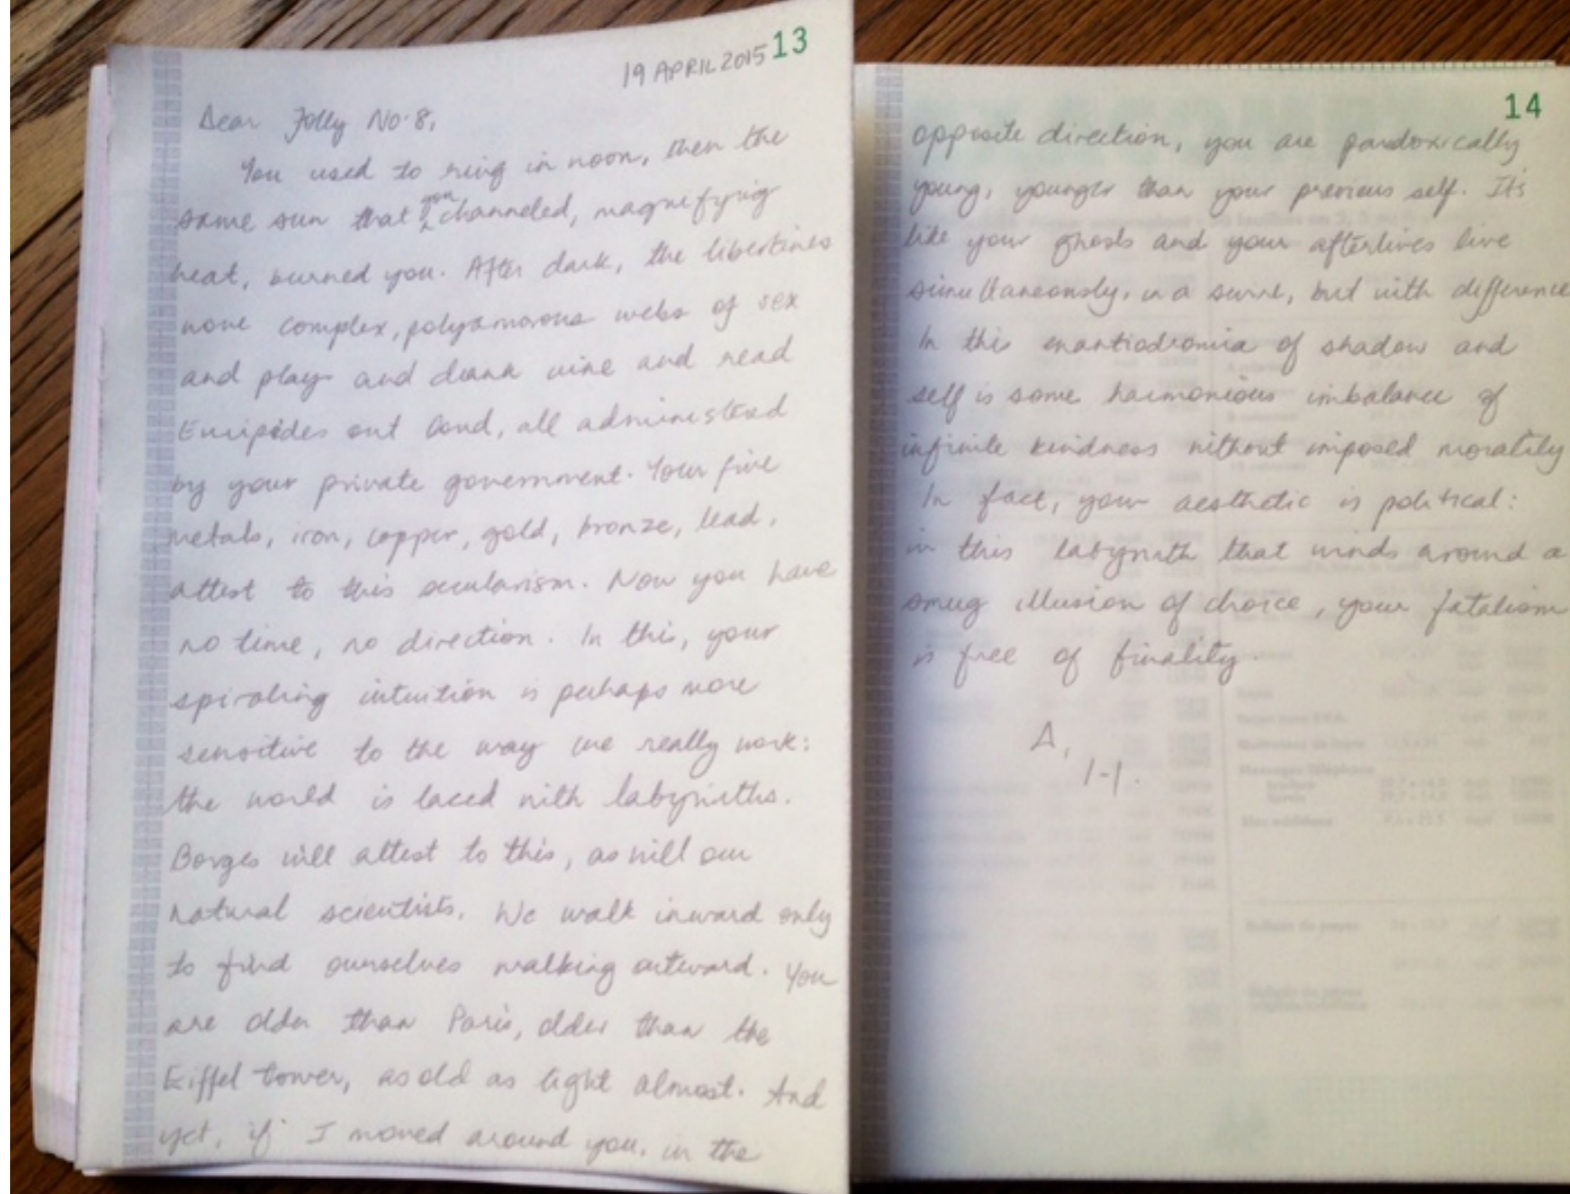 13
19 APRIL 2015
Dear Folly No. 8,
You used to ring in noon, then the
same sun that you channeled, magnifying
heat, burned you. After dark, the libertines
wove complex, polyamorous webs of sex
and play and drank wine and read
Euripides out loud, all administered
by your private government. Your five
metals, iron, copper, gold, bronze, lead,
attest to this secularism. Now you have
no time, no direction. In this, your
spiraling intuition is perhaps more
sensitive to the way we really work:
the world is laced with labyrinths.
Borges will attest to this, as will our
natural scientists. We walk inward only
to find ourselves walking outward. You
are older than Paris, older than the
Eiffel tower, as old as light almost. And
yet, if I moved around you, in the
14
opposite direction, you are paradoxically
young, younger than your previous self. It's
like your ghosts and your afterlives live
simultaneously, in a sense, but with difference
In this enantiodromia of shadow and
self is some harmonious imbalance of
infinite kindness without imposed morality
In fact, your aesthetic is political:
in this labyrinth that winds around a
smug illusion of choice, your fatalism
is free of finality.